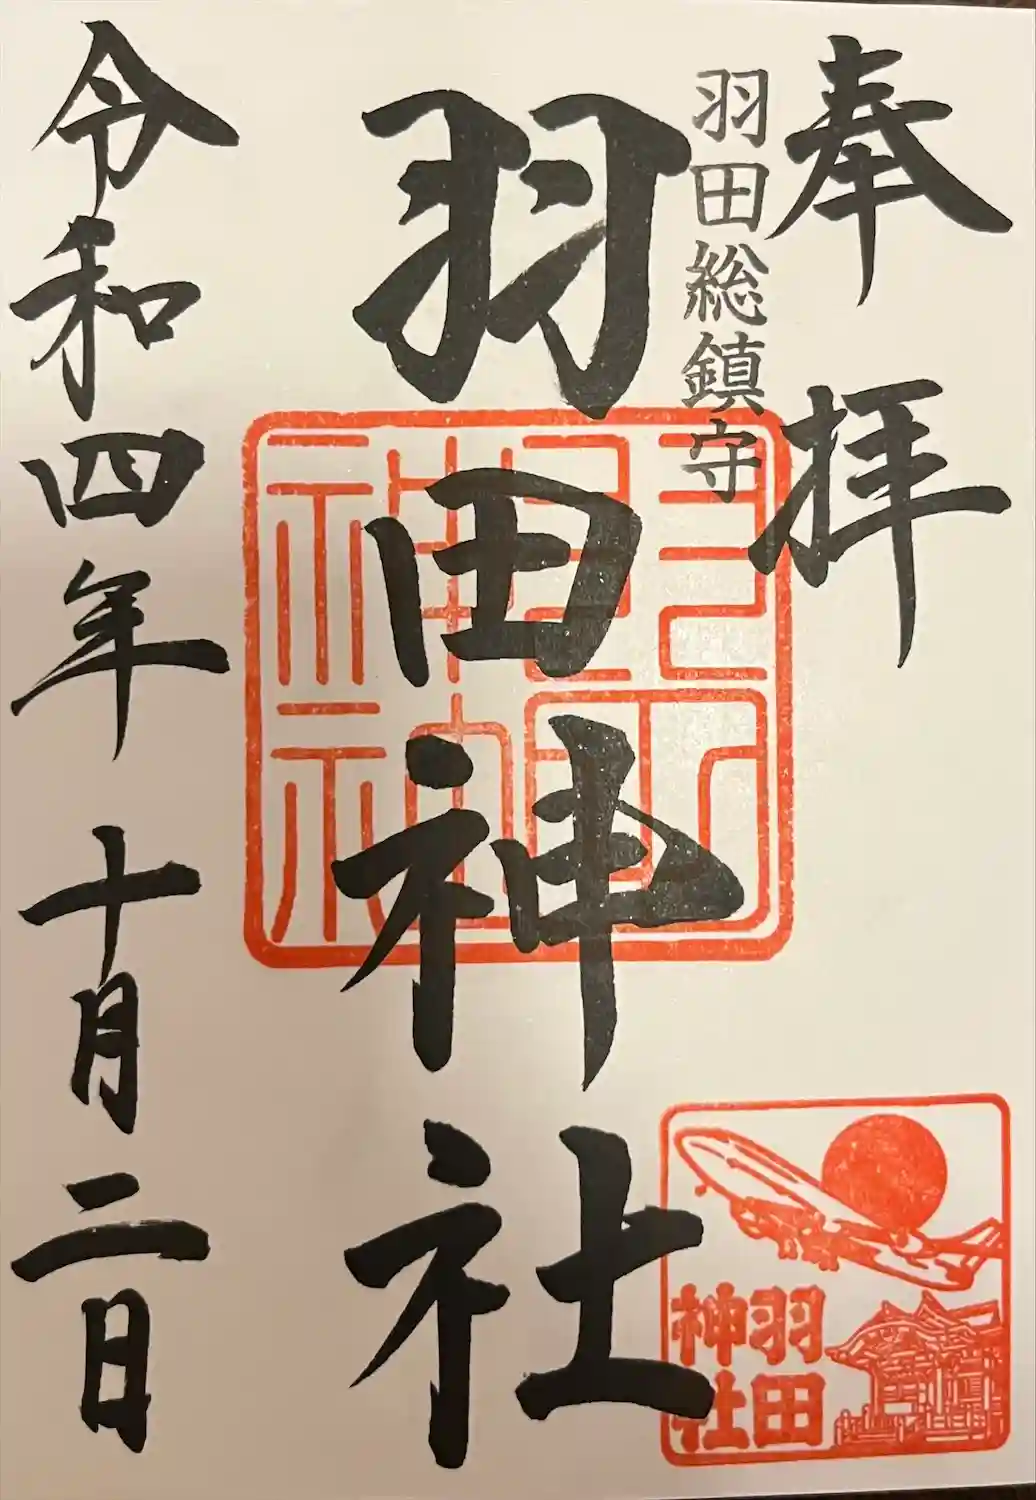 奉拝
羽田総鎮守
羽田神社
羽田神社
令和四年十月二日
羽田
神社